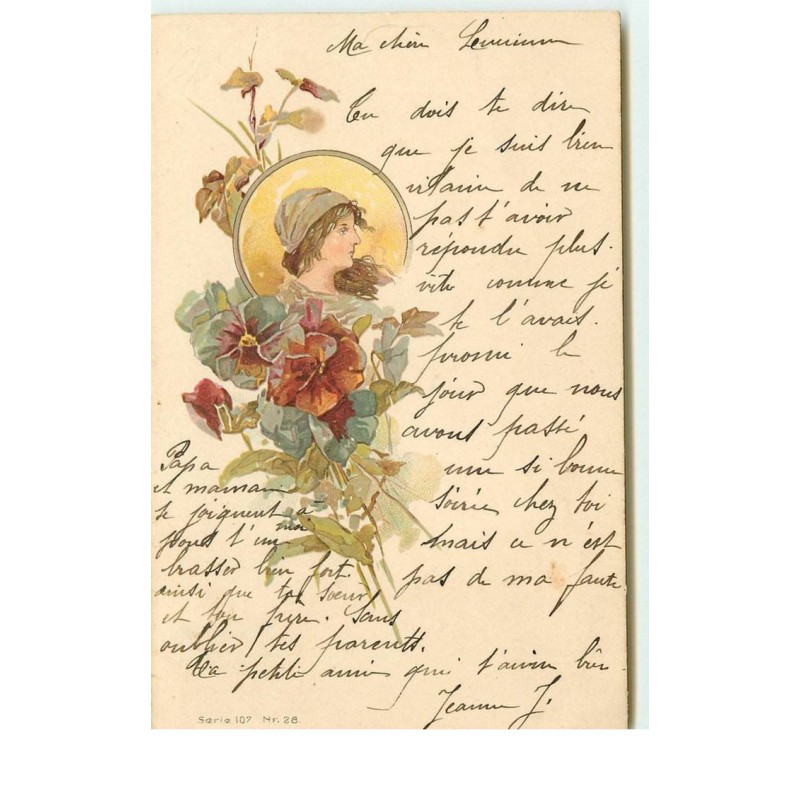 Ma chère
Tu dois te dire
que je suis bien
vilaine de ne
pas t'avoir
répondu plus
vite comme je
te l'avais
promi le
jour que nous
avons passé
une si bonne
soirée chez toi
mais ce n'est
pas de ma faute
Papa
et maman
se joignent à
moi
pour t'em
brasser bien fort.
ainsi que ta soeur
et ton frère. Sans
oublier tes parents.
Ta petite amie qui t'aime bien.
Jeanne J.
Serie 107 Nr. 28